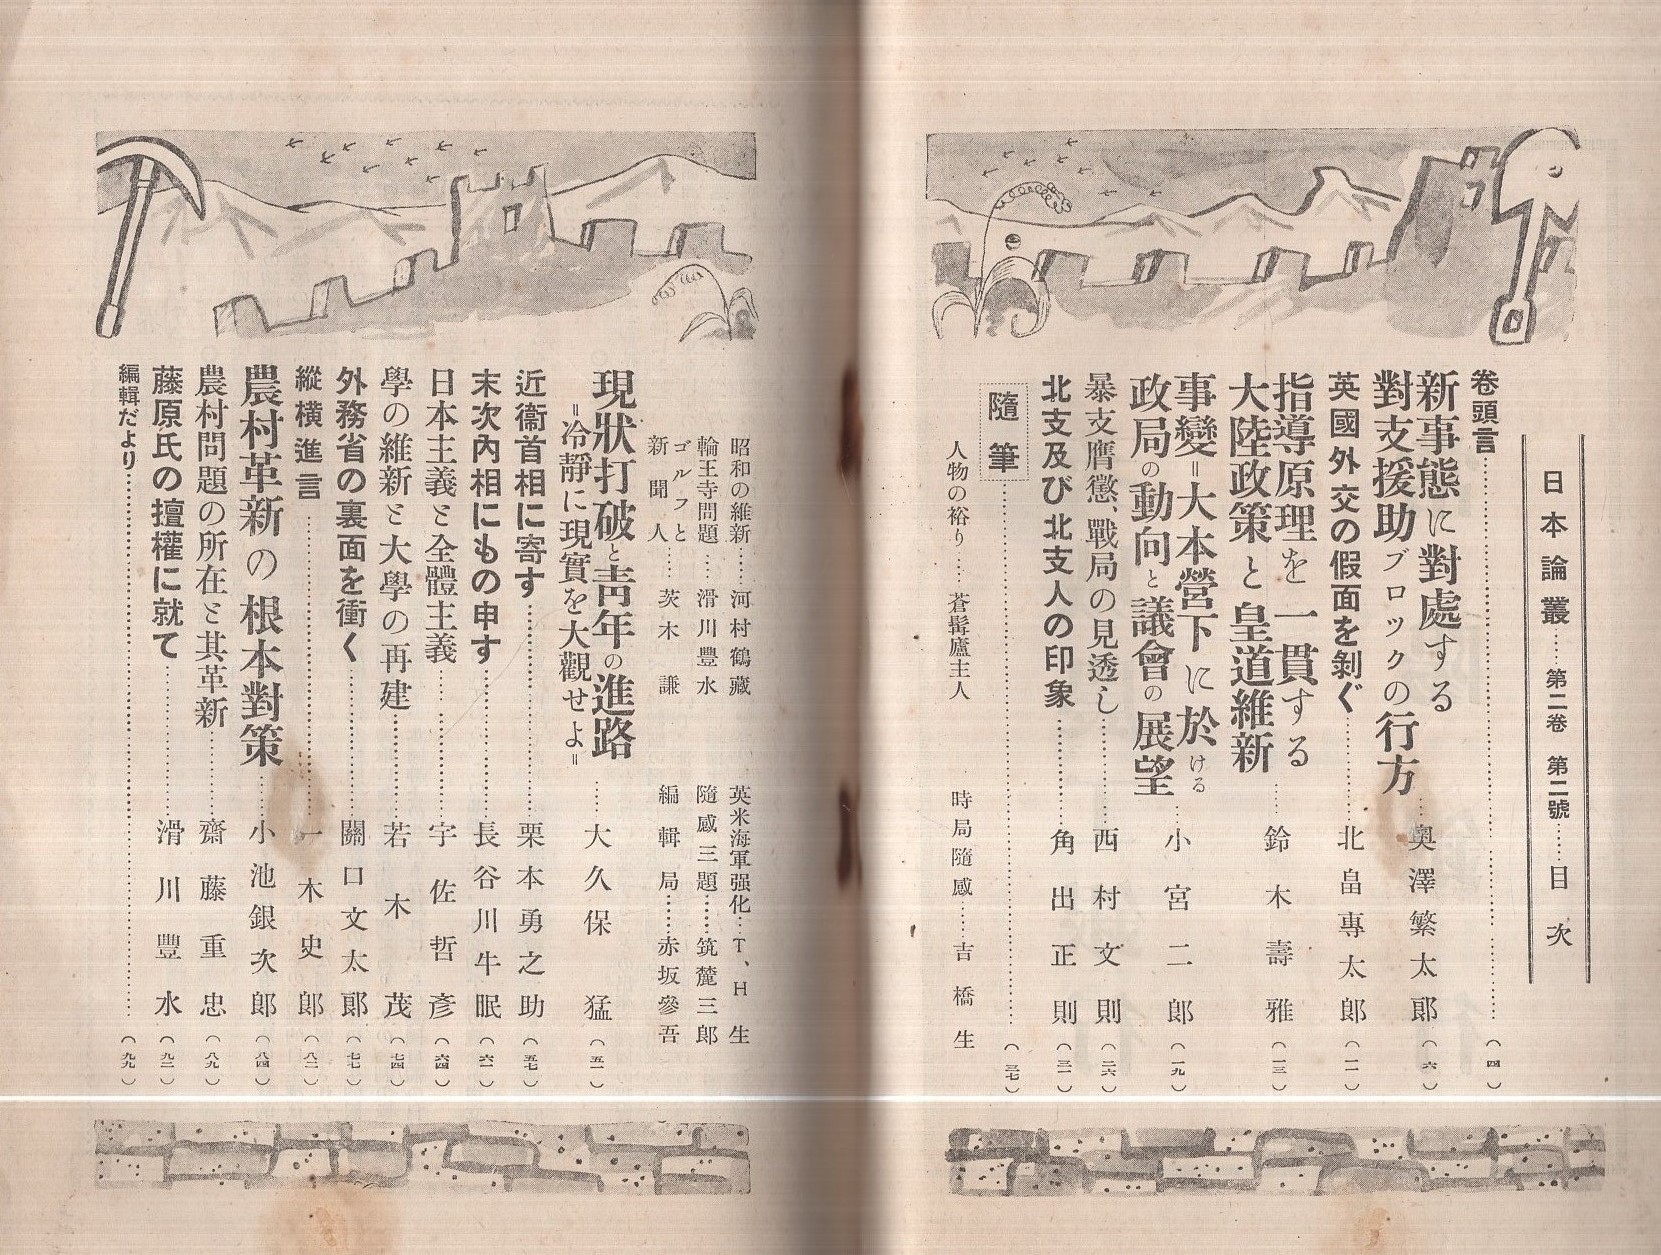 日本論叢……第二卷 第二號……目次
卷頭言……(四)
新事態に對處する
對支援助ブロックの行方……奥澤繁太郎(六)
英國外交の假面を剝ぐ……北畠專太郎(一一)
指導原理を一貫する
大陸政策と皇道維新……鈴木壽雅(一三)
事變=大本營下に於ける
政局の動向と議會の展望……小宮二郎(一九)
暴支膺懲、戰局の見透し……西村文則(二六)
北支及び北支人の印象……角出正則(三一)
隨筆……(三七)
人物の裕り……蒼髯廬主人
時局隨感……吉橋生
昭和の維新……河村鶴藏
英米海軍强化…T、H生
輪王寺問題……滑川豐水
隨感三題……筑麓三郎
ゴルフと
新聞人……茨木謙
編輯局……赤坂參吾
現狀打破と靑年の進路
=冷靜に現實を大觀せよ=……大久保猛(五一)
近衞首相に寄す……栗本勇之助(五七)
末次內相にもの申す……長谷川牛眠(六一)
日本主義と全體主義……宇佐哲彥(六四)
學の維新と大學の再建……若木茂(七四)
外務省の裏面を衝く……關口文太郎(七七)
縱橫進言……一木史郎(八二)
農村革新の根本對策……小池銀次郎(八四)
農村問題の所在と其革新……齋藤重忠(八九)
藤原氏の擅權に就て……滑川豐水(九二)
編輯だより……(九九)